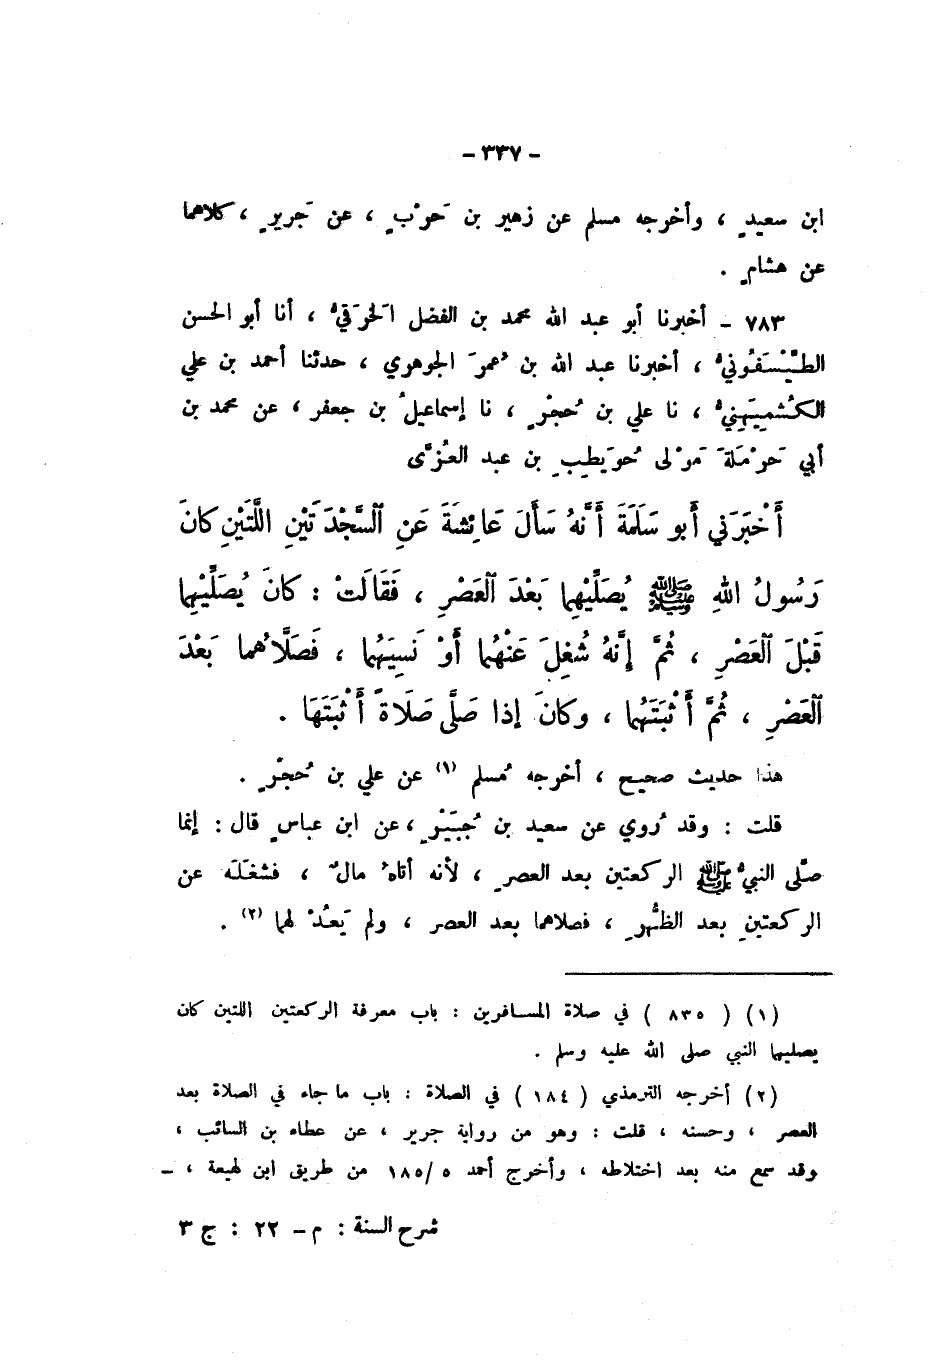 - ٣٣٧ -
ابن سعيدٍ ، وأخرجه مسلم عن زهير بن حَرْبٍ ، عن جَريرٍ ، كلاهما
عن هشامٍ .
٧٨٣ - أخبرنا أبو عبد الله محمد بن الفضل الخَرَقيُّ ، أنا أبو الحسن
الطَّيْسَفُونيُّ ، أخبرنا عبد الله بن عُمرَ الجوهري ، حدثنا أحمد بن علي
الكُشْمِيهَنيُّ ، نا علي بن حُجْرٍ ، نا إسماعيلُ بن جعفر ، عن محمد بن
أبي حَرْمَلَةَ مَوْلى حُوَيطِبِ بن عبد العُزَّى
أَخْبَرَني أَبو سَلَمَةَ أَنَّهُ سَأَلَ عَائِشَةَ عَنِ السَّجْدَتَيْنِ اللَّتَيْنِ كانَ
رَسُولُ اللهِ ﷺ يُصَلِّيْهِما بَعْدَ العَصْرِ ، فَقَالَتْ : كانَ يُصَلِّيْهِما
قَبْلَ العَصْرِ ، ثُمَّ إِنَّهُ شُغِلَ عَنْهُما أَوْ نَسِيَهُما ، فَصَلَّاهُما بَعْدَ
العَصْرِ ، ثُمَّ أَثْبَتَهُما ، وكانَ إذا صَلَّى صَلَاةً أَثْبَتَهَا .
هذا حديث صحيح ، أخرجه مُسلم (١) عن علي بن حُجْرٍ .
قلت : وقد رُوي عن سعيد بن جُبَيْرٍ ، عن ابن عباسٍ قال : إنما
صلَّى النبيُّ ﷺ الركعتين بعد العصرِ ، لأنه أتاهُ مالٌ ، فشغَلَه عن
الركعتينِ بعد الظُّهرِ ، فصلاهما بعد العصر ، ولم يَعُدْ لهما (٢) .
(١) ( ٨٣٥ ) في صلاة المسافرين : باب معرفة الركعتين اللتين كان
يصليهما النبي صلى الله عليه وسلم .
(٢) أخرجه الترمذي ( ١٨٤ ) في الصلاة : باب ما جاء في الصلاة بعد
العصر ، وحسنه ، قلت : وهو من رواية جرير ، عن عطاء بن السائب ،
وقد سمع منه بعد اختلاطه ، وأخرج أحمد ٥/١٨٥ من طريق ابن لهيعة ، -
شرح السنة : م - ٢٢ : ج ٣